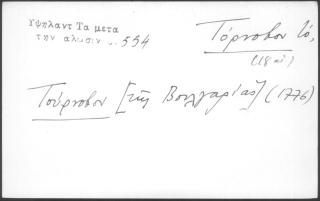 Υψηλαντ Τα μετα
την αλωσιν σ. 554
Τόρνοβον τό,
(18 αἰ.)
Τούρνοβον [τῆς Βουλγαρίας] (1776)